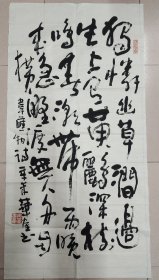 獨憐幽草澗邊
生上有黃鸝深樹
鳴春潮帶雨晚
来急野渡無人舟自
橫 韋應物詩